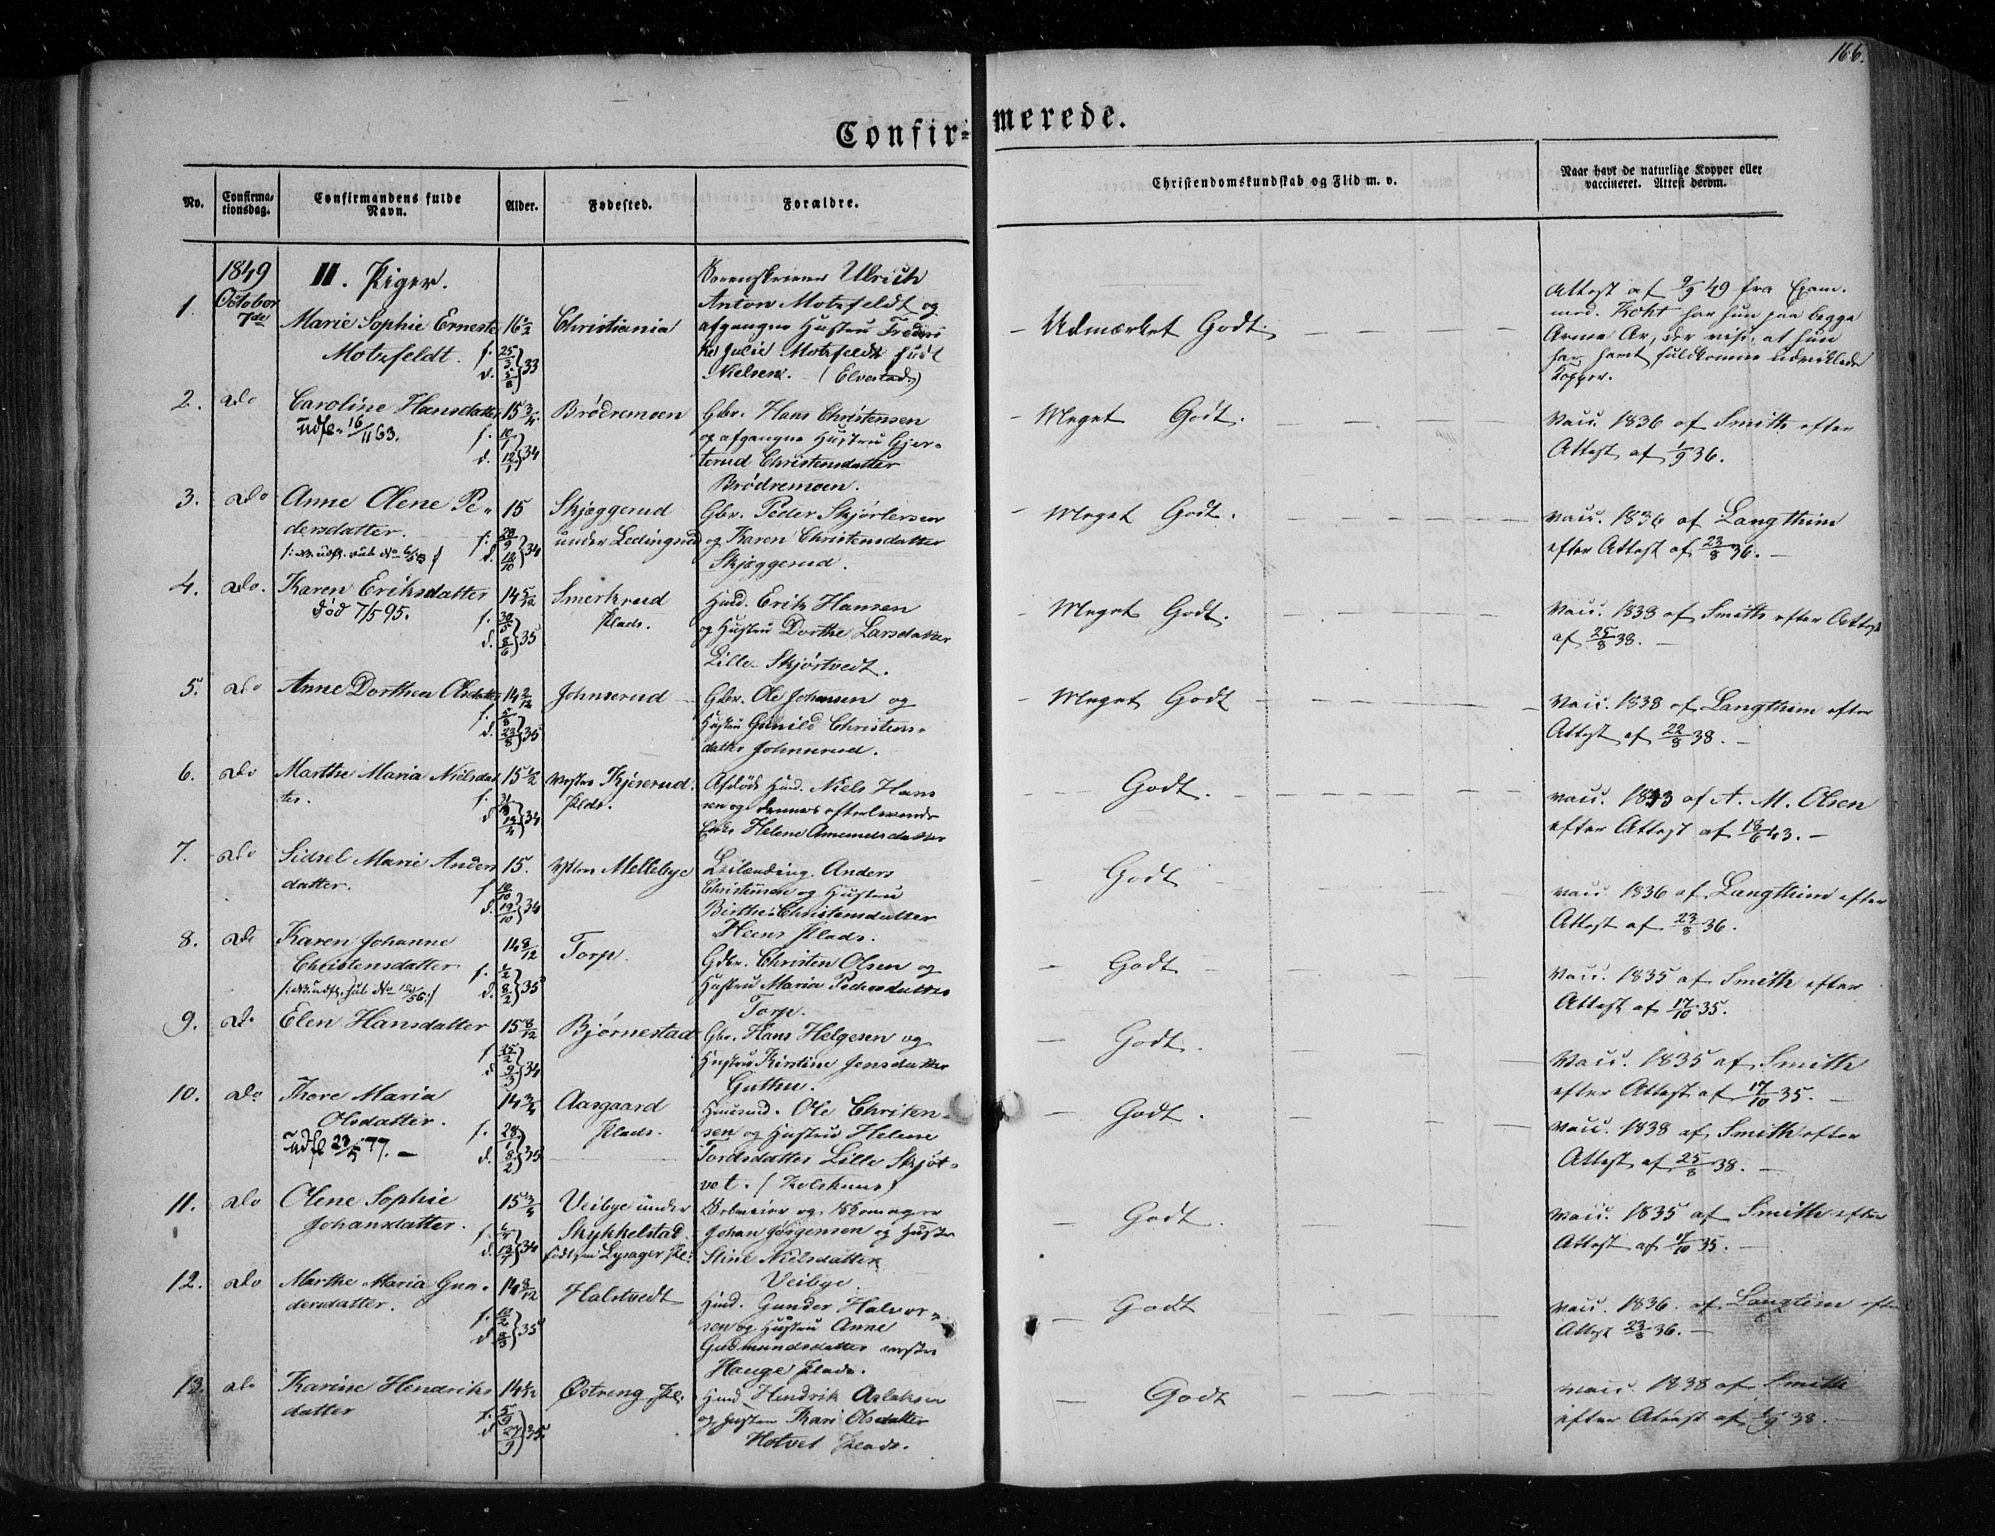 166.
Confirmerede.
No.
Confirmationsdag.
Confirmandens fulde Navn.
Alder.
Fødested.
Forældre.
Christendomskundskab og Flid m. v.
Naar havt de naturlige Kopper eller vaccineret. Attest derom.
1849
II. Piger.
1. October 7de
Marie Sophie Erneste
Motzfeldt.
f. 25/3 33
Christiania
Sorenskriver Ulrich
Anton Motzfeldt og
afgangne Hustru Frederi
ke Julie Motzfeldt født
Nielsen. (Elvestad)
Udmærket Godt.
Attest af 9/9 49 fra Exam.
med. Koht har hun paa begge
Arme Ar, der vise, at hun
har havt fuldkomne udviklede
Kopper.
2. do
Caroline Hansdatter 15 3/4
Udfl. 16/11 63.
d. 12/1 34
Brödremoen
Gbr. Hans Christensen
og afgangne Hustru Gjer-
terud Christensdatter
Brödremoen.
Meget Godt.
Vacc. 1836 af Smith efter
Attest af 1/9 36.
3. do
Anne Olene Pe- 15
dersdatter.
f. 20/9 34
d. 12/10
Skjæggerud
under Ledingrud
Gbr. Peder Skjørtersen
og Karen Christensdatter
Skjæggerud.
Meget Godt.
Vacc. 1836 af Langthim
efter Attest af 23/8 36. -
4. do.
Karen Eriksdatter 14 5/12
død 7/5 95.
f. 30/5 35
d. 8/6
Smerkrud
Plads.
Husd. Erik Hansen
og Hustru Dorthe Larsdatter
Lille Skjørtvedt.
Meget Godt.
Vacc. 1838 af Smith efter Attest
af 25/8 38. -
5. do
Anne Dorthea Olsdatter 14 2/12
f. 5/8 35
d. 23/8
Johnserud
Gbr. Ole Johansen og
Hustru Gunild Christens-
datter Johnserud.
Meget Godt
Vacc. 1838 af Langthim efter
Attest af 22/8 38. -
6. do
Marthe Maria Nielsdat
ter.
15 1/2
d. 13/4 34
Vestre Kjeserud.
Plds.
Afdöde Husd. Niels Hans
sen og dennes efterlevende
Enke Helene Amundsdatter
Godt.
Vacc. 1843 af A. M. Olsen
efter Attest af 18/6 43. -
7. do
Sidsel Marie Anders
datter.
15.
f. 10/10 34
d. 19/10
Mellebye
Leilænding. Anders
Christensen og Hustru
Birthe Christensdatter
Heens Plads.
Godt
Vacc. 1836 af Langthim efter
Attest af 23/8 36.
8. do
Karen Johanne
Christensdatter
14 8/12
f. 1/2 35
d. 8/2
Torp.
Gdbr. Christen Olsen og
Hustru Maria Pedersdatter
Torp.
Godt
Vacc. 1835 af Smith efter
Attest af 17/10 35.
9. do
Elen Hansdatter 15 8/12
f. 15/2 34
d. 9/3
Bjørnestad
Gbr. Hans Helgesen og
Hustru Kirstine Jensdatter
Guthu.
Godt.
Vacc. 1835 af Smith
efter Attest af 17/10 35.
10. do
Thore Maria
Olsdatter.
Udfl 23/5 77. -
14 3/4
f. 28/1 35
d. 8/2
Aasgaard
Plads.
Huusmd. Ole Christen-
sen og Hustru Helene
Tordsdatter Lille Skjøt-
vet.
Godt.
Vacc. 1838 af Smith efter
Attest af 25/8 38. -
11. do
Olene Sophie
Johansdatter.
15 3/4
d. 13/7 34
Veibye under
Skykkelstad
født paa Lysager Pl.
Selveier og Skomager
Johan Jörgensen og Hustru
Stine Nielsdatter
Veibye.
Godt.
Vacc. 1835 af Smith efter
Attest af 17/10 35. -
12. do
Marthe Maria Gun-
dersdatter.
14 8/12
f. 12/2 35
Halstvedt
Husd. Gunder Halvor-
sen og Hustru Anne
Gudmundsdatter vestre
Hauge Plads.
Godt
Vacc. 1836. af Langtim efter
Attest 23/8 36. -
13. do
Karine Hendriks
datter
14 1/12
f. 5/9 35
d. 27/9
Østreng Pl.
Husd Hendrik Aslaksen
og Hustru Kari Olsdatter
Hotvet Plads.
Godt
Vacc. 1838 af Smith
efter Attest af 1/9 38.